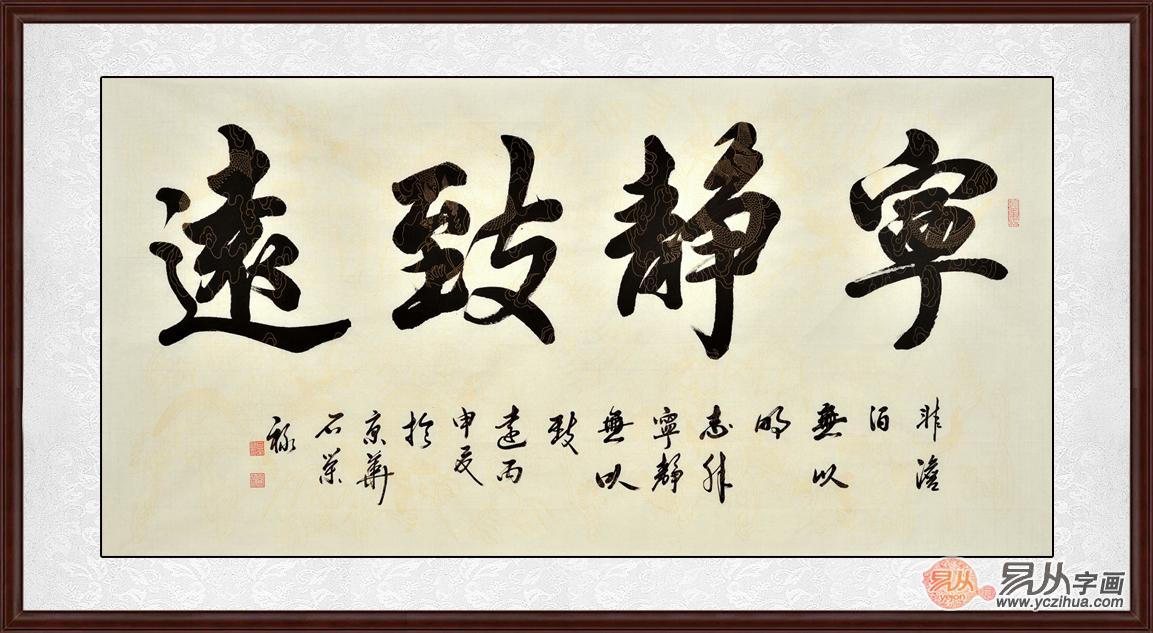 寧靜致遠
非澹
泊
無以
明
志非
寧靜
無以
致
遠丙
申夏
於
京華
石榮
祿
易从
yeion
易从字画
www.yczihua.com